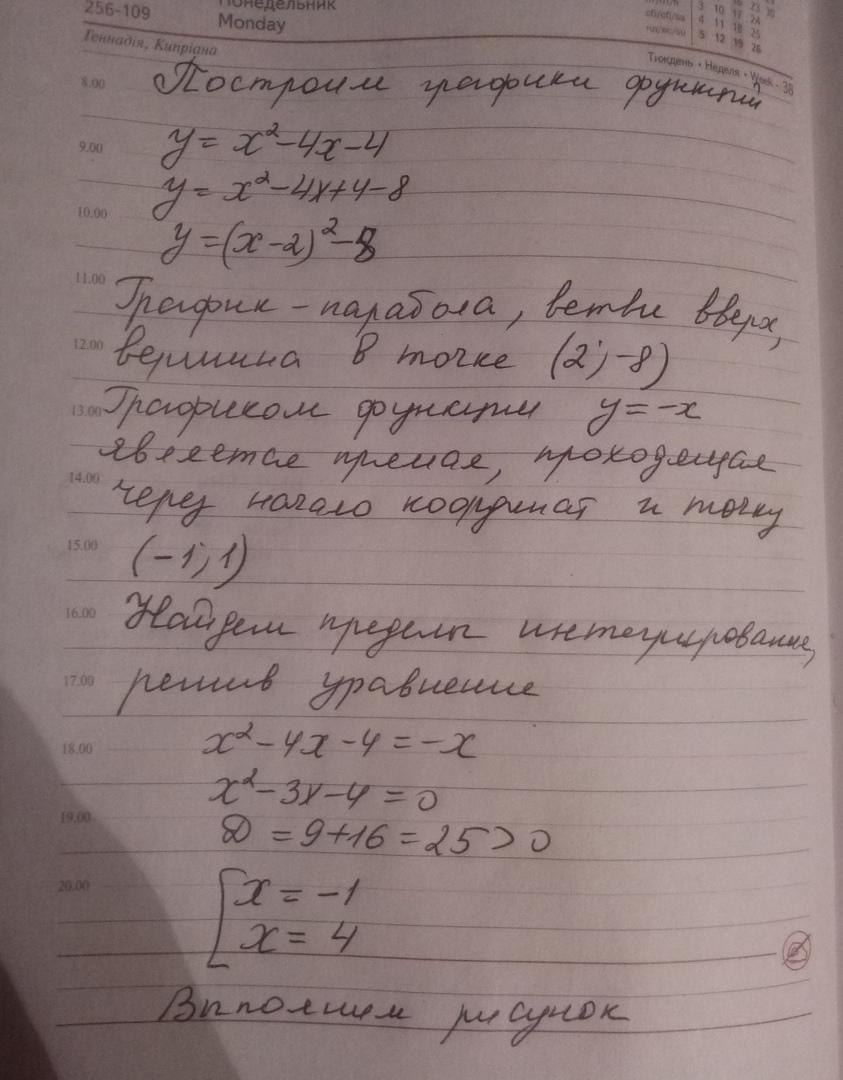 256-109
Понедельник
Monday
Геннадія, Кипріана
3 10 17 24
4 11 18 25
5 12 19 26
Тиждень • Неделя • Week - 38
8.00 Построим графики функций
9.00 y = x²-4x-4
y = x²-4x+4-8
10.00 y = (x-2)²-8
11.00 График - парабола, ветви вверх,
12.00 вершина в точке (2; -8)
13.00 Графиком функции y = -x
является прямая, проходящая
14.00 через начало координат и точку
15.00 (-1; 1)
16.00 Найдем пределы интегрирования,
17.00 решив уравнение
18.00 x²-4x-4 = -x
x²-3x-4 = 0
19.00 D = 9+16 = 25 > 0
20.00 [ x = -1
x = 4
Выполним рисунок